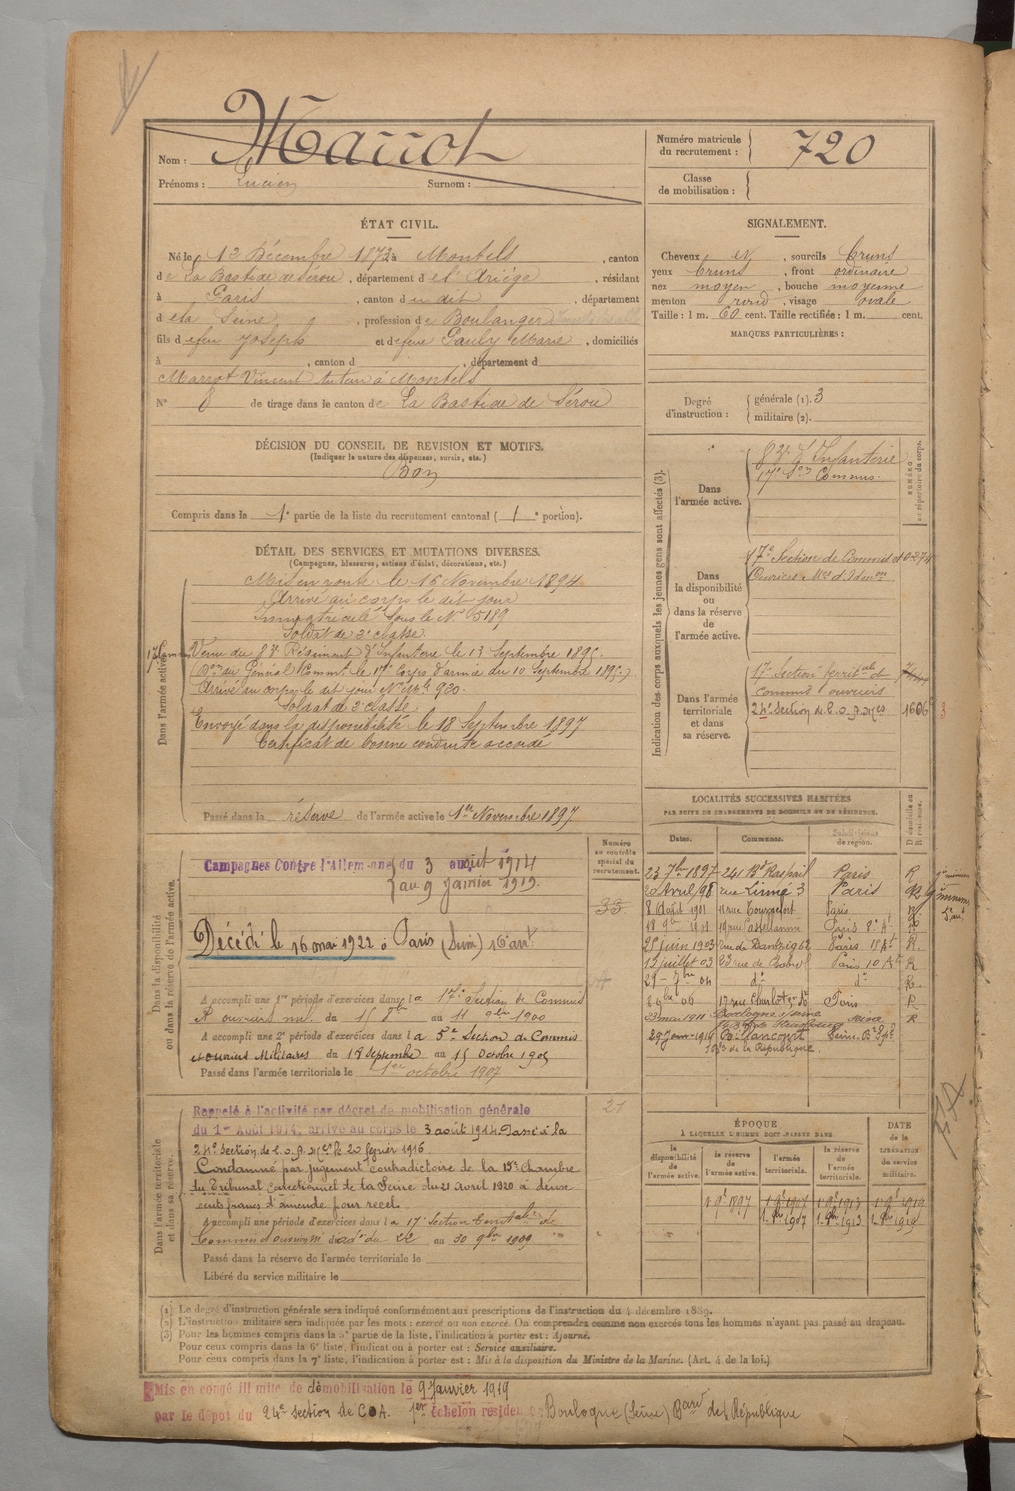 Nom : Marrot
Prénoms : Lucien Surnom :
Numéro matricule du recrutement : 720
Classe de mobilisation :
ÉTAT CIVIL.
Né le 13 Décembre 1873 à Montels , canton
de La Bastide de Sérou , département de l'Ariège , résidant
à Paris , canton du dit , département
de la Seine , profession de Boulanger
fils de feu Joseph et de feue Pauly Marie , domiciliés
à , canton d , département d
Marrot Vincent tuteur à Montels
N° 8 de tirage dans le canton de La Bastide de Sérou
SIGNALEMENT.
Cheveux et , sourcils bruns
yeux bruns , front ordinaire
nez moyen , bouche moyenne
menton rond , visage ovale
Taille : 1 m. 60 cent. Taille rectifiée : 1 m. cent.
MARQUES PARTICULIÈRES :
Degré d'instruction : générale (1). 3
militaire (2).
DÉCISION DU CONSEIL DE REVISION ET MOTIFS.
(Indiquer la nature des dispenses, sursis, etc.)
Bon
Compris dans la 1e partie de la liste du recrutement cantonal ( 1e portion).
DÉTAIL DES SERVICES ET MUTATIONS DIVERSES.
(Campagnes, blessures, actions d'éclat, décorations, etc.)
Dans l'armée active.
Mis en route le 16 Novembre 1894
Arrivé au corps le dit jour
Immatriculé sous le N° 5189
Soldat de 2e classe.
Venu du 83e Régiment d'Infanterie le 13 Septembre 1895.
(Don du Général Commt le 17e Corps d'armée du 10 Septembre 1895.)
Arrivé au corps le dit jour N° mle 920.
Soldat de 2e classe
Envoyé dans la disponibilité le 18 Septembre 1897
Certificat de bonne conduite accordé
Passé dans la réserve de l'armée active le 1er Novembre 1897
Indication des corps auxquels les jeunes gens sont affectés (3).
NUMÉRO au répertoire du corps.
Dans l'armée active.
83e d'Infanterie
17e Son Commis
Dans la disponibilité ou dans la réserve de l'armée active.
17e Section de Commis et 0274
Ouvriers Mres d'Admon
Dans l'armée territoriale et dans sa réserve.
17e Section territale de
commis ouvriers
24e Section de C.O.A. 1606
LOCALITÉS SUCCESSIVES HABITÉES
PAR SUITE DE CHANGEMENTS DE DOMICILE OU DE RÉSIDENCE.
Dates. Communes. Subdivisions de région. D domicile ou R résidence.
23 7bre 1897 241 Bd Raspail Paris R
Avril/98 rue Linné 3 Paris R
8 Août 1901 11 rue Tournefort Paris
19 rue Castellane Paris 8e At
25 juin 1903 rue de Dantzig 62 Paris 15 At R
13 juillet 03 Paris 10 At R
04 do do R
06 17 rue Charlot Paris R
23 mai 1911 Boulogne s/ Seine Seine R
29 Janv 1919 Billancourt Seine
de la République.
Dans la disponibilité ou dans la réserve de l'armée active.
Numéro au contrôle spécial du recrutement.
Campagnes Contre l'Allemagne du 3 août 1914
au 9 Janvier 1919.
35
Décédé le 16 mai 1922 à Paris (Seine) 16e arrt
A accompli une 1re période d'exercices dans la 17e Section de Commis
et ouvriers mil. du 15 8bre au 11 9bre 1900
A accompli une 2e période d'exercices dans la 5e Section de Commis
et ouvriers Militaires du 18 Septembre au 15 octobre 1905
Passé dans l'armée territoriale le 1er octobre 1907
Dans l'armée territoriale et dans sa réserve.
21
Rappelé à l'activité par décret de mobilisation générale
du 1er Août 1914, arrivé au corps le 3 août 1914. Passé à la
24e Section de C.O.A. le 20 février 1916
Condamné par jugement contradictoire de la 13e Chambre
du Tribunal Correctionnel de la Seine du 21 avril 1920 à deux
cents francs d'amende pour recel.
A accompli une période d'exercices dans la 17e Section territale de
Commis et ouvriers d'adon du 22 au 30 9bre 1909
Passé dans la réserve de l'armée territoriale le
Libéré du service militaire le
ÉPOQUE
À LAQUELLE L'HOMME DOIT PASSER DANS
la disponibilité de l'armée active. la réserve de l'armée active. l'armée territoriale. la réserve de l'armée territoriale. DATE de la LIBÉRATION du service militaire.
1 9e 1897 1 9e 1907 1 9e 1913 1 9e 1919
1 8bre 1907 1 8bre 1913 1 8bre 1919
(1) Le degré d'instruction générale sera indiqué conformément aux prescriptions de l'instruction du 4 décembre 1889.
(2) L'instruction militaire sera indiquée par les mots : exercé ou non exercé. On comprendra comme non exercés tous les hommes n'ayant pas passé au drapeau.
(3) Pour les hommes compris dans la 5e partie de la liste, l'indication à porter est : Ajourné.
Pour ceux compris dans la 6e liste, l'indication à porter est : Service auxiliaire.
Pour ceux compris dans la 7e liste, l'indication à porter est : Mis à la disposition du Ministre de la Marine. (Art. 4 de la loi.)
Mis en congé illimité de démobilisation le 9 Janvier 1919
par le dépôt du 24e section de COA. 1er échelon résidence Boulogne (Seine) Bard de la République